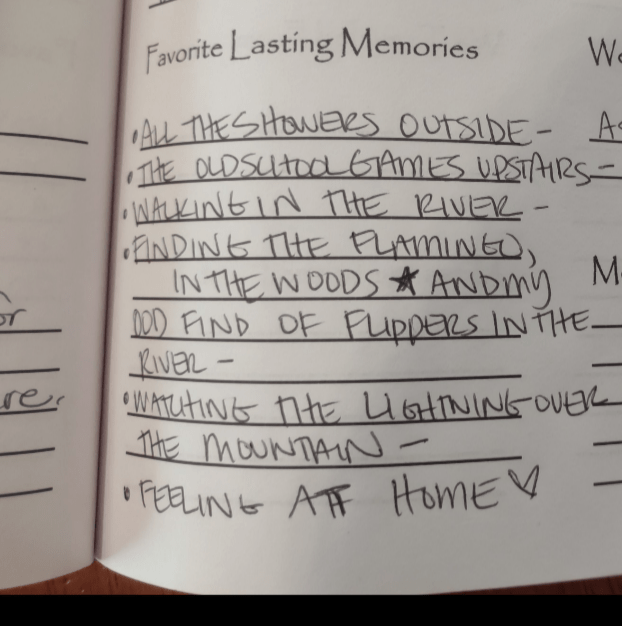 Favorite Lasting Memories
• ALL THE SHOWERS OUTSIDE -
• THE OLD SCHOOL GAMES UPSTAIRS -
• WALKING IN THE RIVER -
• FINDING THE FLAMINGO,
IN THE WOODS ★ AND MY
ODD FIND OF FLIPPERS IN THE
RIVER -
• WATCHING THE LIGHTNING OVER
THE MOUNTAIN -
• FEELING AT HOME ♡